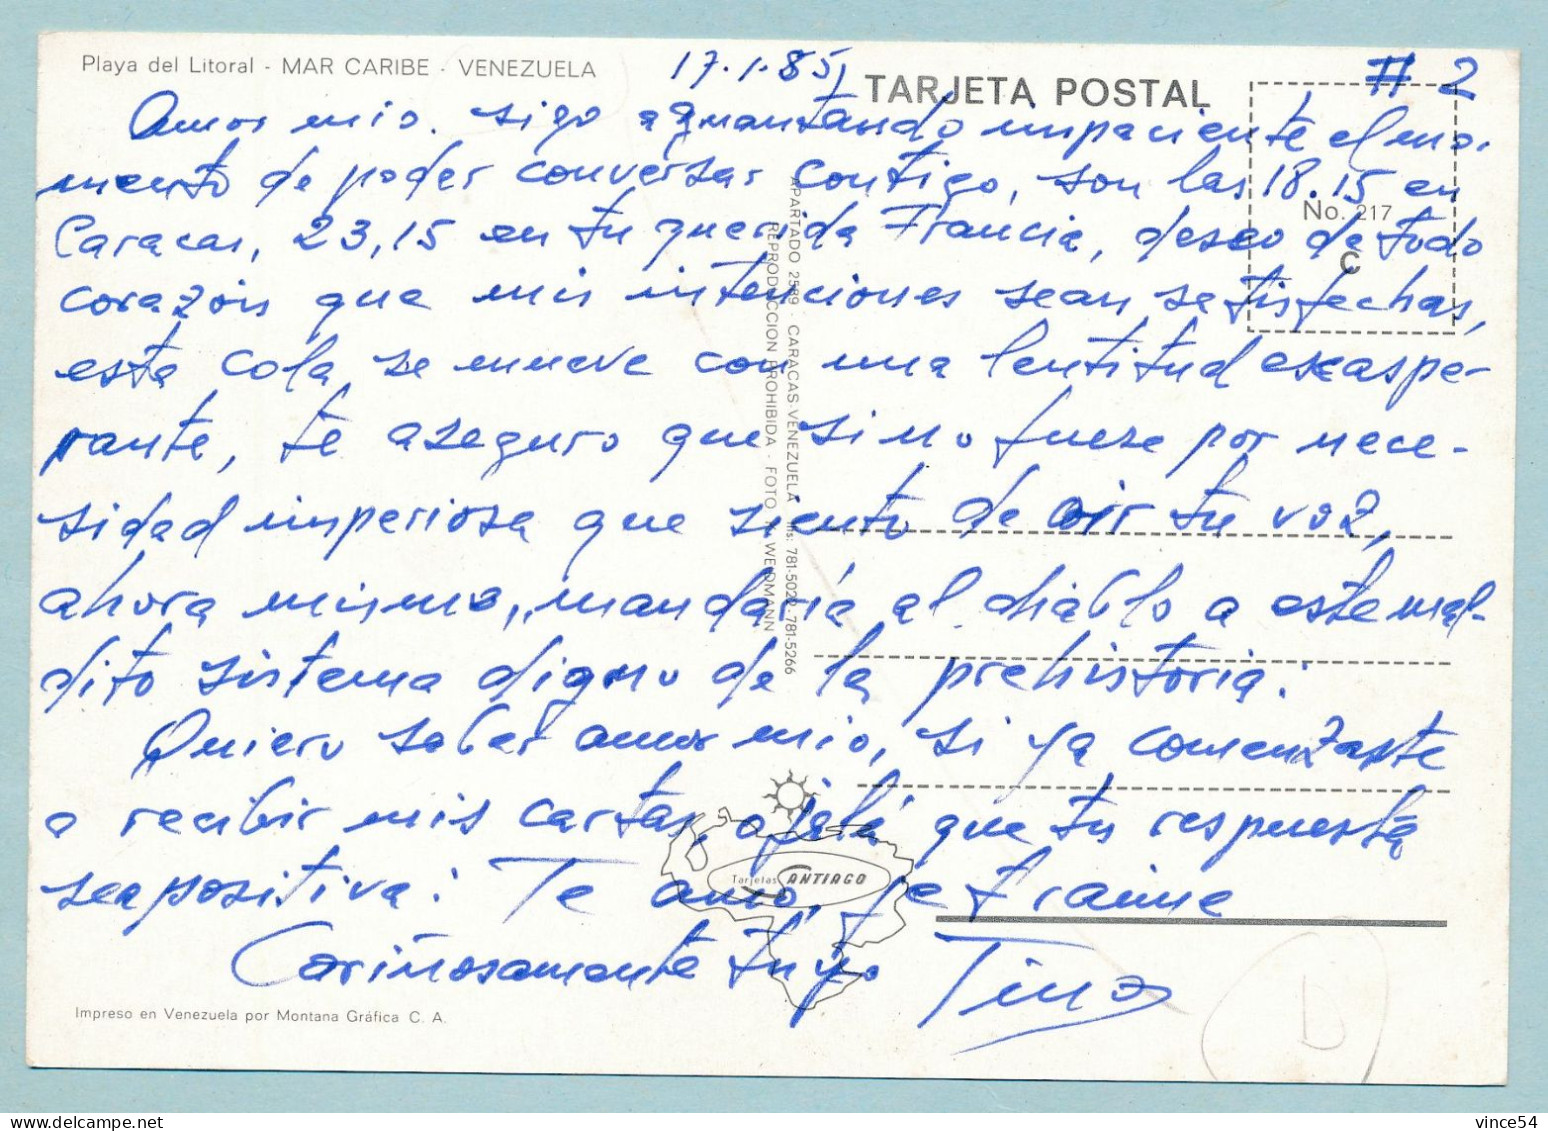 Playa del Litoral - MAR CARIBE - VENEZUELA
17.1.85,
TARJETA POSTAL
# 2
Amor mio. sigo aguantando impaciente el mo-
mento de poder conversar contigo, son las 18.15 en
No. 217
Caracas, 23,15 en tu querida Francia, deseo de todo
C
corazón que mis intenciones sean satisfechas,
esta cola se mueve con una lentitud exaspe-
rante, te aseguro que si no fuese por nece-
sidad imperiosa que siento de oir tu voz,
ahora mismo, mandaría al diablo a este mal-
dito sistema digno de la prehistoria:
Quiero saber amor mio, si ya comenzaste
a recibir mis cartas, ojalá que tu respuesta
sea positiva: Te amo, je t'aime
Cariñosamente tuyo Tino
APARTADO 2589 - CARACAS-VENEZUELA Tlfs: 781-5022-781-5266
REPRODUCCION PROHIBIDA - FOTO K. WEIDMANN
Tarjetas SANTIAGO
Impreso en Venezuela por Montana Gráfica C. A.
vince54